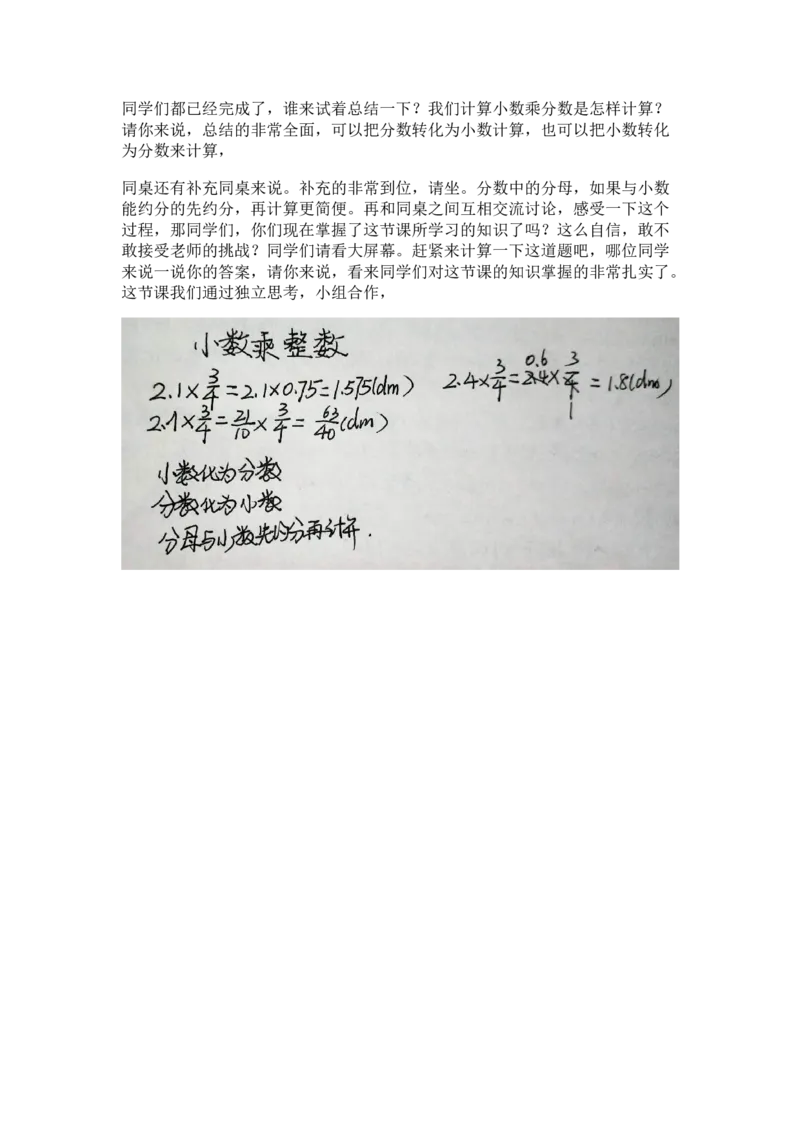 同学们都已经完成了，谁来试着总结一下？我们计算小数乘分数是怎样计算？
请你来说，总结的非常全面，可以把分数转化为小数计算，也可以把小数转化
为分数来计算，
同桌还有补充同桌来说。补充的非常到位，请坐。分数中的分母，如果与小数
能约分的先约分，再计算更简便。再和同桌之间互相交流讨论，感受一下这个
过程，那同学们，你们现在掌握了这节课所学习的知识了吗？这么自信，敢不
敢接受老师的挑战？同学们请看大屏幕。赶紧来计算一下这道题吧，哪位同学
来说一说你的答案，请你来说，看来同学们对这节课的知识掌握的非常扎实了。
这节课我们通过独立思考，小组合作，
小数乘整数
2.1×3/4=2.1×0.75=1.575(dm)
2.1×3/4=21/10×3/4=63/40(dm)
2.4×3/4=2.4×3/4=1.8(dm)
0.6
1
小数化为分数
分数化为小数
分母与小数先约分再计算.